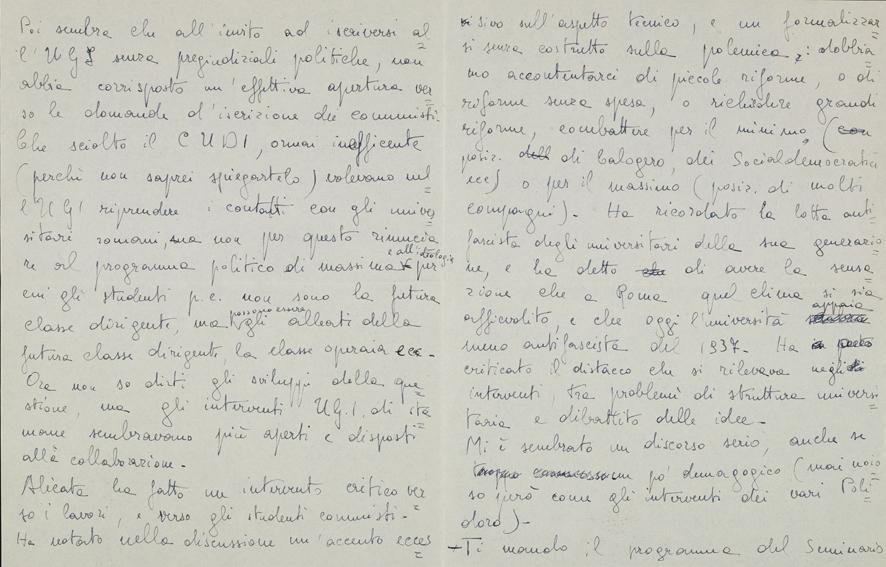 Poi sembra che all'invito ad iscriversi al
l'UGI senza pregiudiziali politiche, non
abbia corrisposto un'effettiva apertura ver
so le domande d'iscrizione dei comunisti.
Che sciolto il CUDI, ormai inefficente
(perchè non saprei spiegartelo) volevano nel
l'UGI riprendere i contatti con gli univer
sitari romani, ma non per questo rinuncia
re al programma politico di massima e all'ideologia per
cui gli studenti p.e. non sono la futura
classe dirigente, ma possono essere gli alleati della
futura classe dirigente, la classe operaia ecc.-
Ora non so dirti gli sviluppi della que
stione, ma gli interventi UGI. di sta
mane sembravano più aperti e disposti
alla collaborazione.-
Alicata ha fatto un intervento critico ver
so i lavori, e verso gli studenti comunisti.-
Ha notato nella discussione un'accento ecces
sivo sull'aspetto tecnico, e un formalizzar
si senza costrutto sulla polemica: dobbia
mo accontentarci di piccole riforme, o di
riforme senza spesa, o richiedere grandi
riforme, combattere per il minimo, (
posiz. di Calogero, dei Socialdemocratici
ecc) o per il massimo (posiz. di molti
compagni).- Ha ricordato la lotta anti
fascista degli universitari della sua generazio
ne, e ha detto di avere la sensa
zione che a Roma quel clima si sia
affievolito, e che oggi l'università appaia
meno antifascista del 1937.- Ha
criticato il distacco che si rilevava negli
interventi, tra problemi di struttura universi
taria e dibattito delle idee.-
Mi è sembrato un discorso serio, anche se
un po' demagogico (mai noio
so però come gli interventi dei vari Poli
doro).-
- Ti mando il programma del Seminario